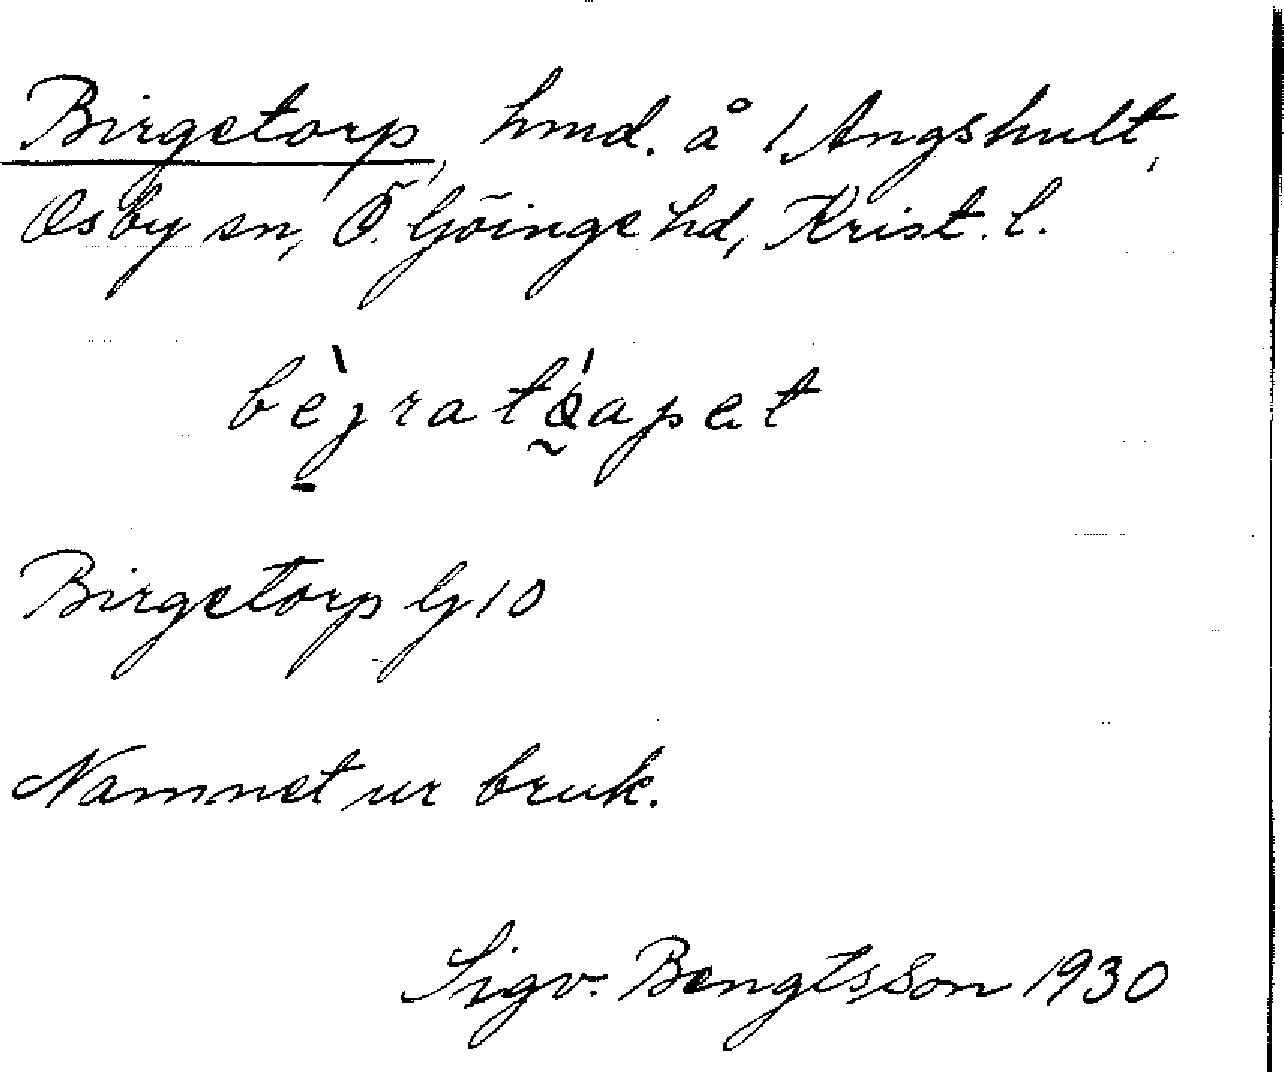 Birgetorp, hmd. å 1 Angshult,
Osby sn, Ö. Göinge hd, Krist. l.
Birgetorp G 10
Namnet ur bruk.
Sigv. Bengtsson 1930